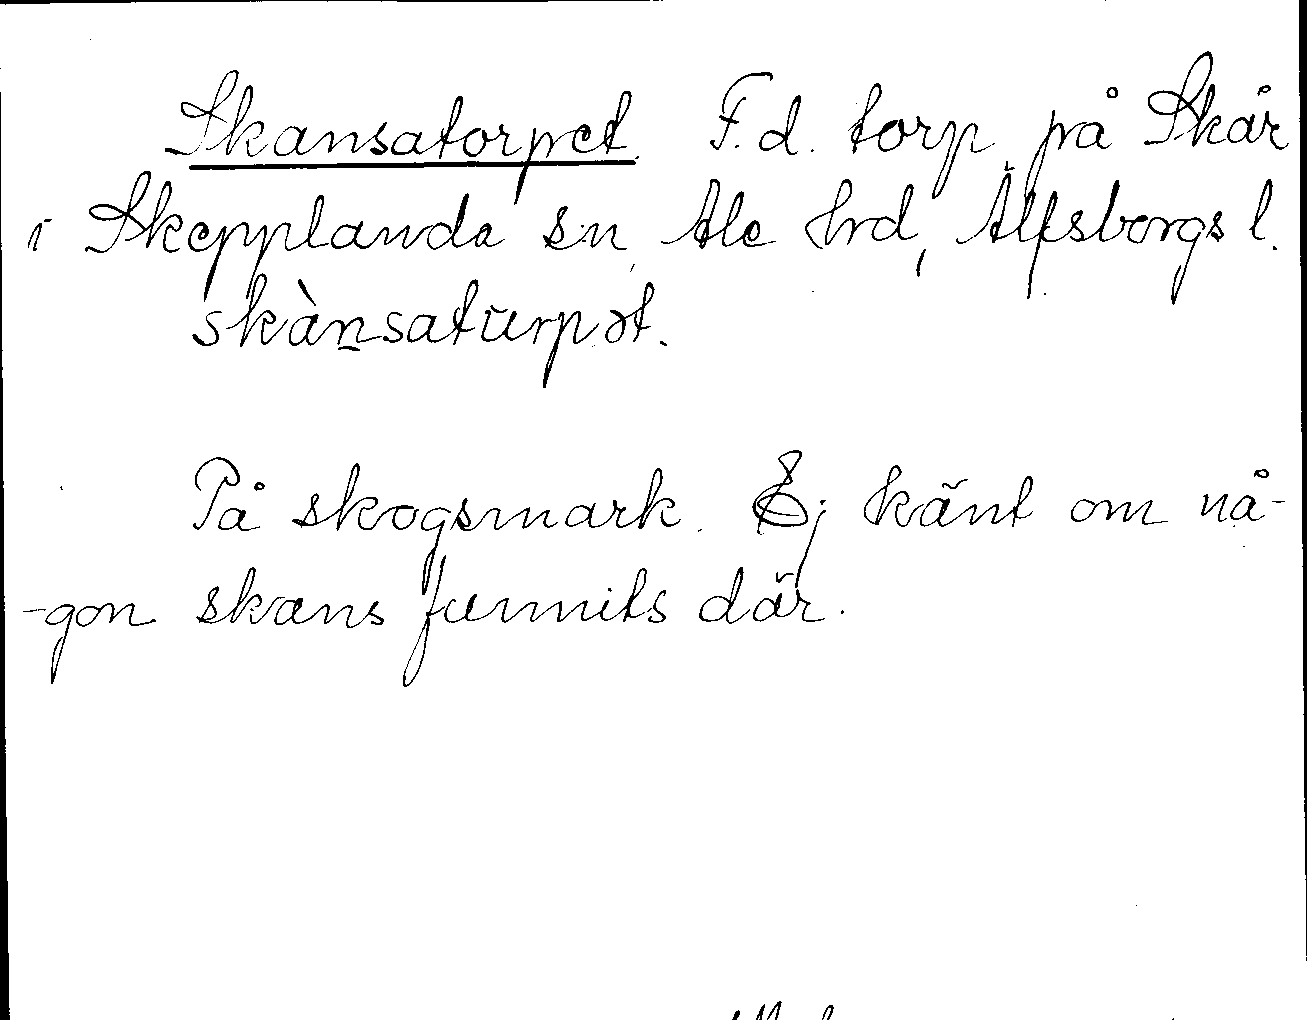 Skansatorpet. F.d. torp på Skår
i Skepplanda sn, Ale hrd, Älfsborgs l.
skànsatùrpət.
På skogsmark. Ej känt om nå-
-gon skans funnits där.